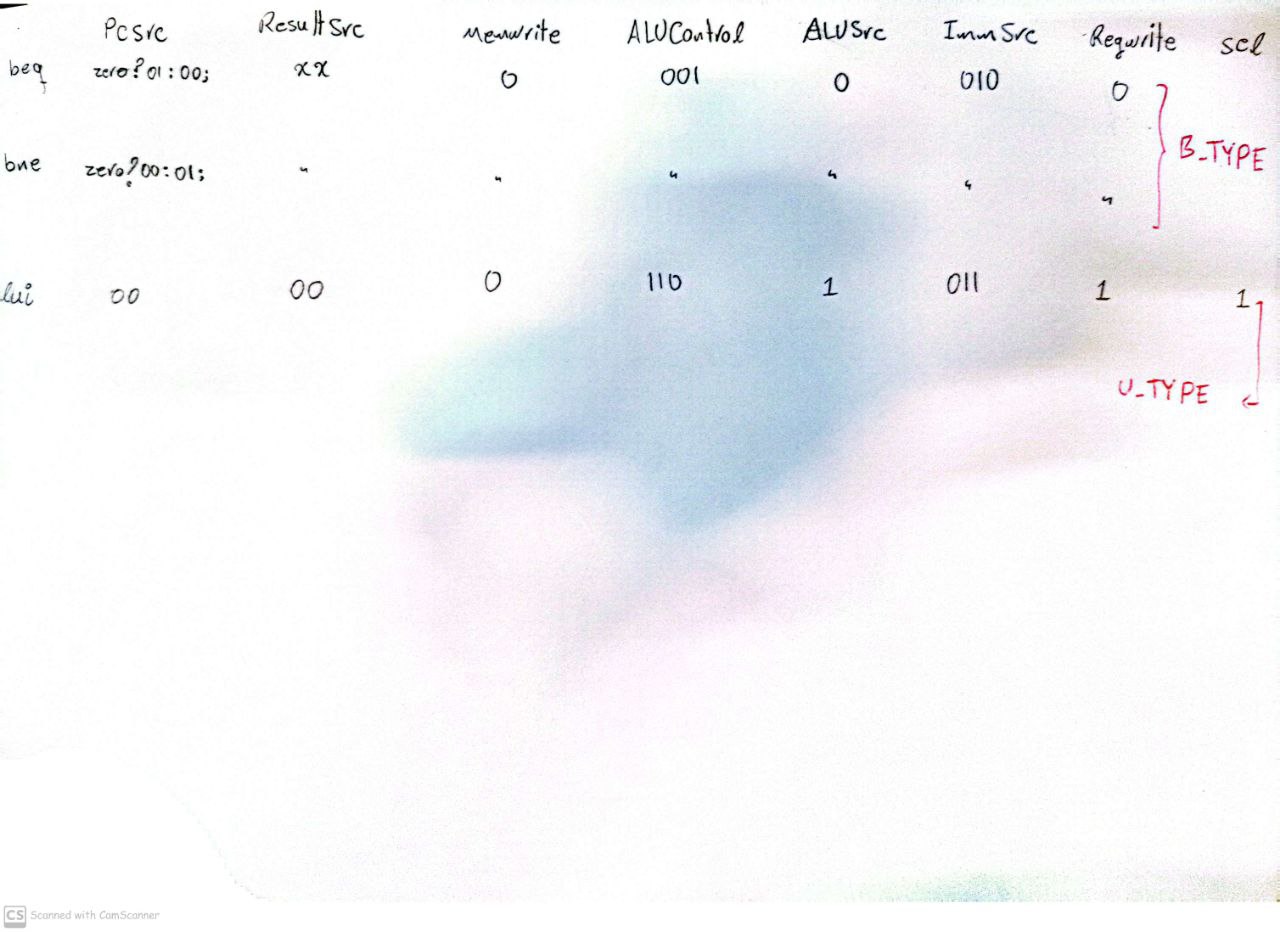 PcSrc ResultSrc Memwrite ALUControl ALUSrc ImmSrc Regwrite sel
beq zero?01:00; xx 0 001 0 010 0
B_TYPE
bne zero?00:01; " " " " " "
lui 00 00 0 110 1 011 1 1
U_TYPE
CS Scanned with CamScanner